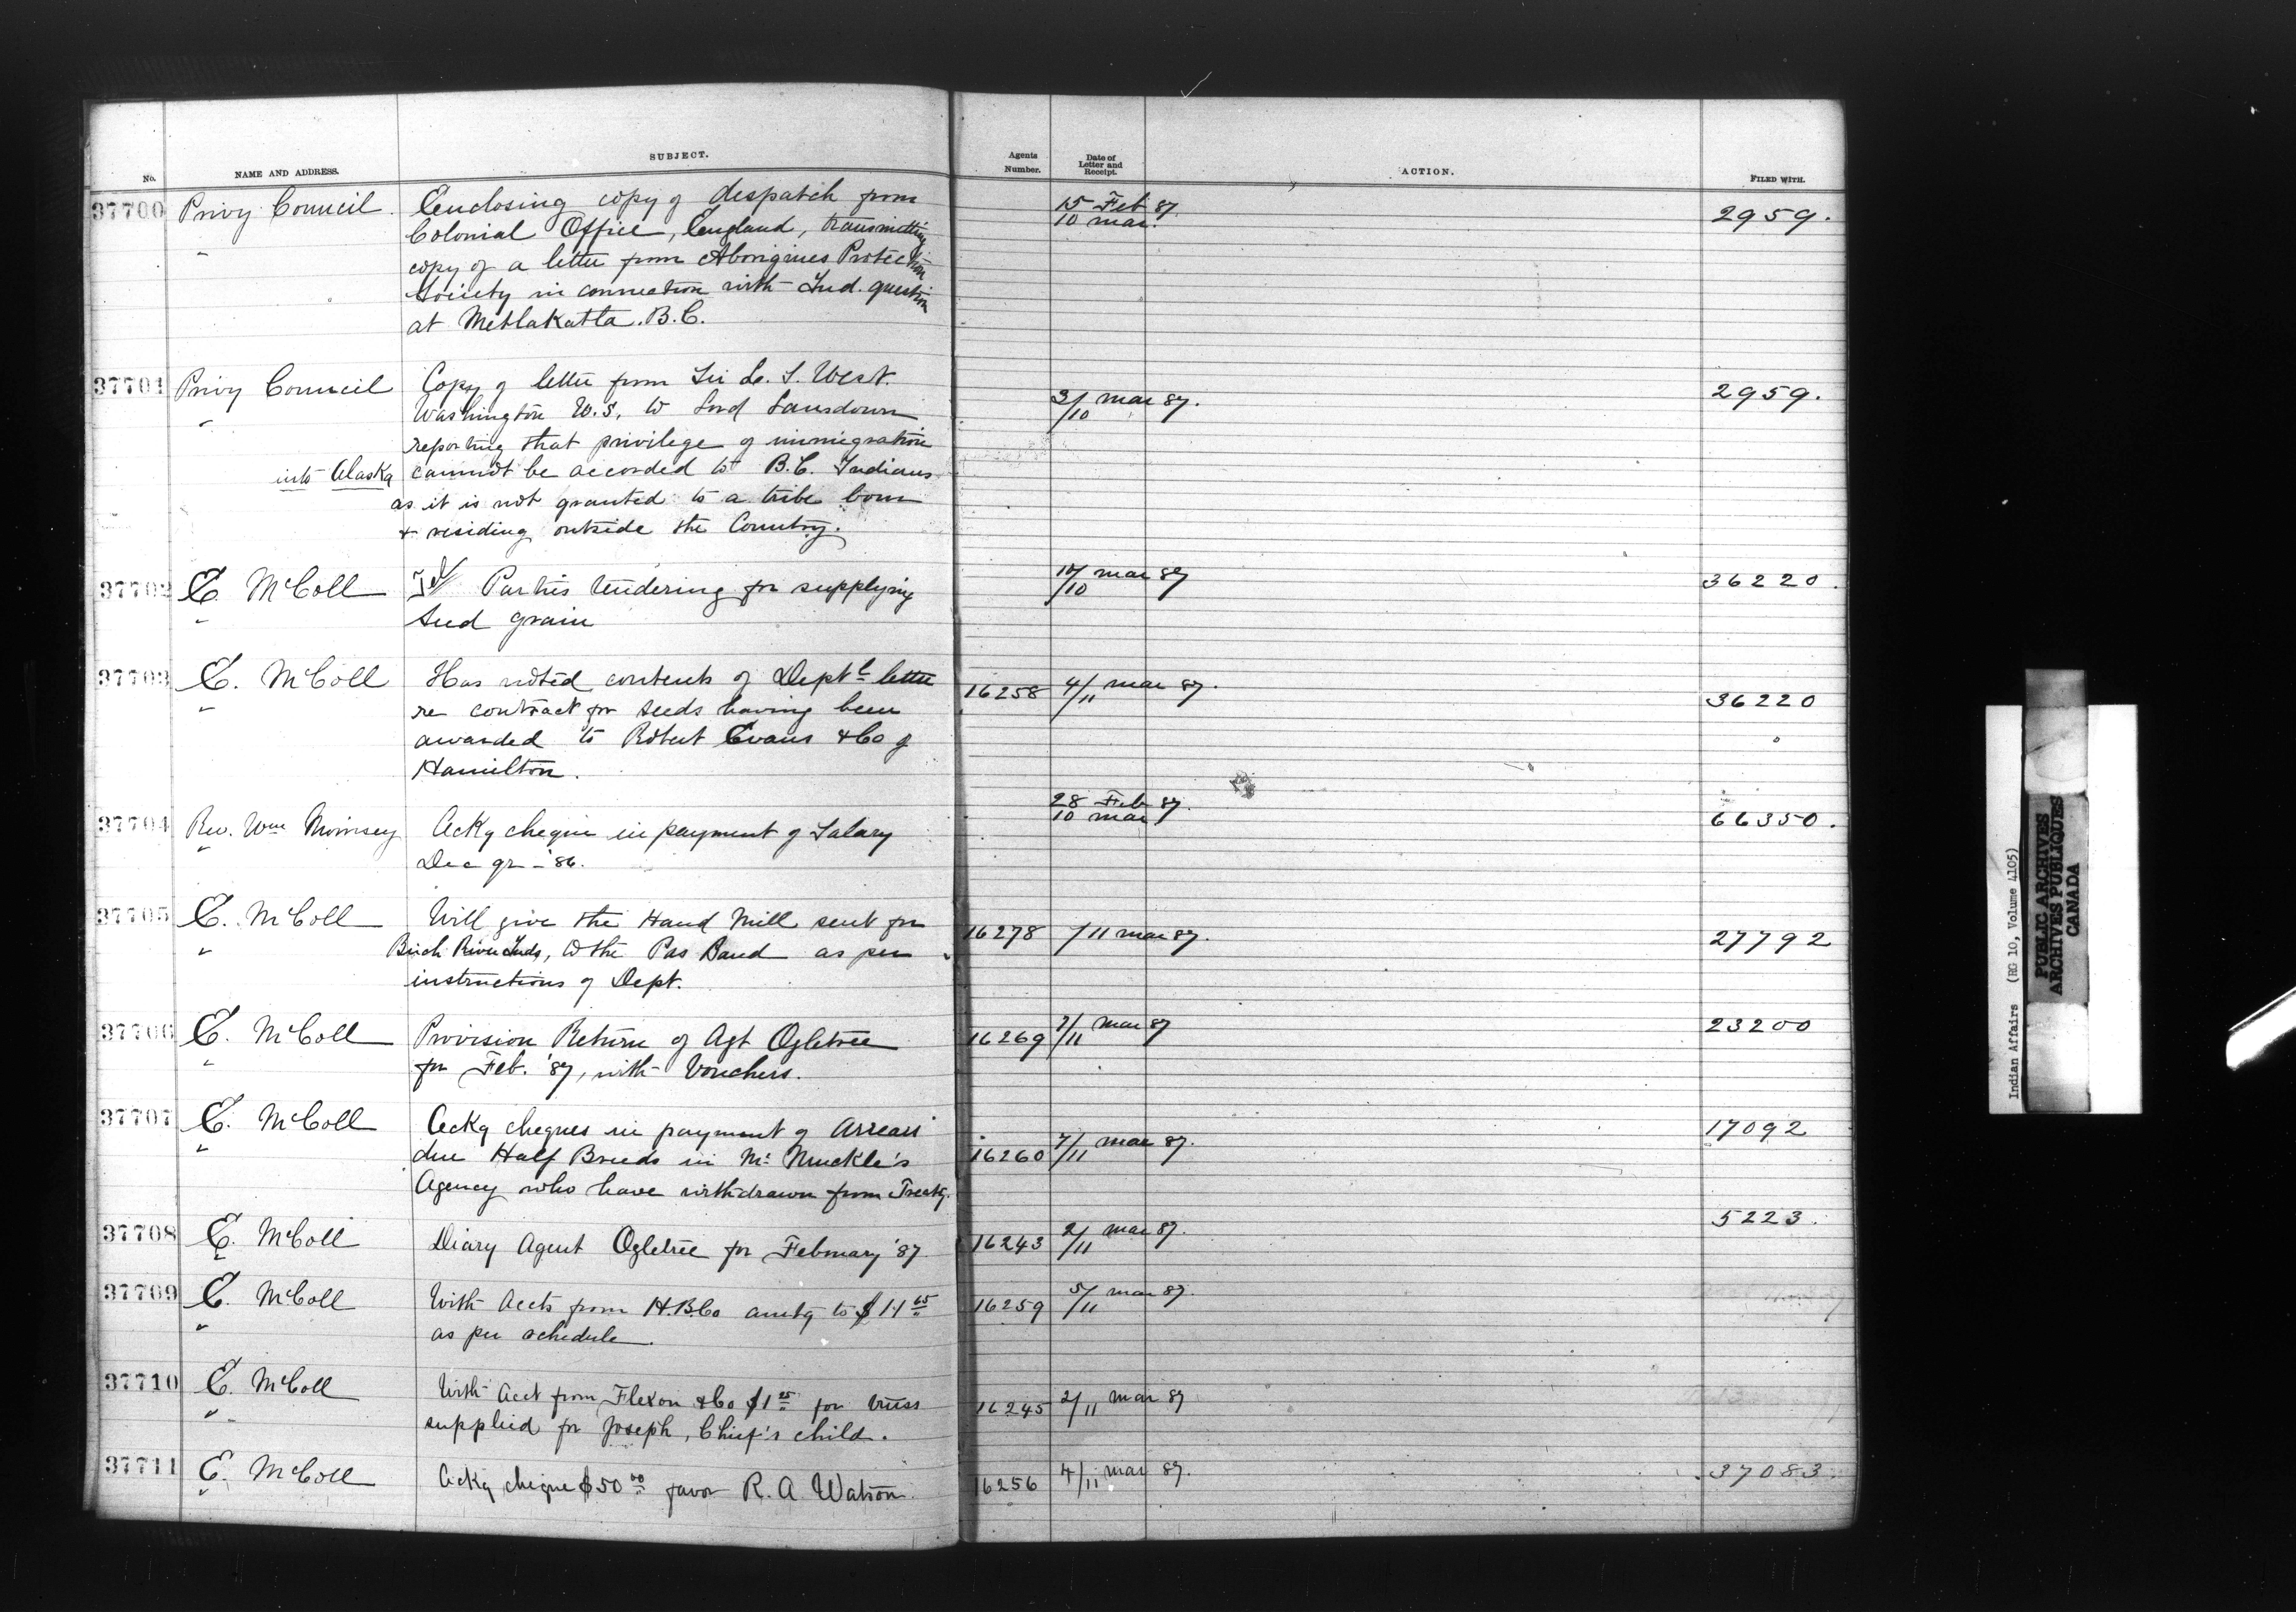 No. NAME AND ADDRESS. SUBJECT. Agents Number. Date of Letter and Receipt. ACTION. FILED WITH.
37700 Privy Council. Enclosing copy of despatch from 15 Feb 87. 2959.
Colonial Office, England, transmitting 10 Mar.
" copy of a letter from Aborigines Protection
Society in connection with Ind. question
at Metlakatla. B.C.
37701 Privy Council Copy of letter from Sir L. S. West. 3/10 Mar 87. 2959.
" Washington U.S. to Lord Lansdown
reporting that privilege of immigration
into Alaska cannot be accorded to B.C. Indians
as it is not granted to a tribe born
& residing outside the Country.
37702 E. McColl Tel/ Parties tendering for supplying 10/10 Mar 87 36220.
" Seed grain
37703 E. McColl Has noted contents of Deptl letter 16258 4/11 Mar 87. 36220
" re contract for seeds having been
awarded to Robert Evans & Co of
Hamilton.
37704 Rev. Wm Ackg cheque in payment of Salary 28 Feb 87. 66350.
" Dec qr - '86. 10 Mar
37705 E. McColl Will give the Hand Mill sent for 16278 /11 Mar 87. 27792
" Birch River Inds, to the Pas Band as per
instructions of Dept.
37706 E. McColl Provision Return of Agt Ogletree 16269 7/11 Mar 87 23200
" for Feb. '87, with Vouchers.
37707 E. McColl Ackg cheques in payment of Arrears 17092
" due Half Breeds in Mr Muckle's 16260 7/11 Mar 87.
Agency who have withdrawn from Treaty.
37708 E. McColl Diary Agent Ogletree for February '87 16243 2/11 Mar 87. 5223.
"
37709 E. McColl With Accts from H.B.Co amtg to $11 65 16259 5/11 Mar 87.
" as per schedule.
37710 E. McColl With Acct from Flexon & Co $1 25 for truss 16245 2/11 Mar 87
" supplied for Joseph, Chief's child.
37711 E. McColl Ackg cheque $50 00 favor R. A. Watson. 16256 4/11 Mar 87. 37083.
"
Indian Affairs (RG 10, Volume 4105)
PUBLIC ARCHIVES
ARCHIVES PUBLIQUES
CANADA